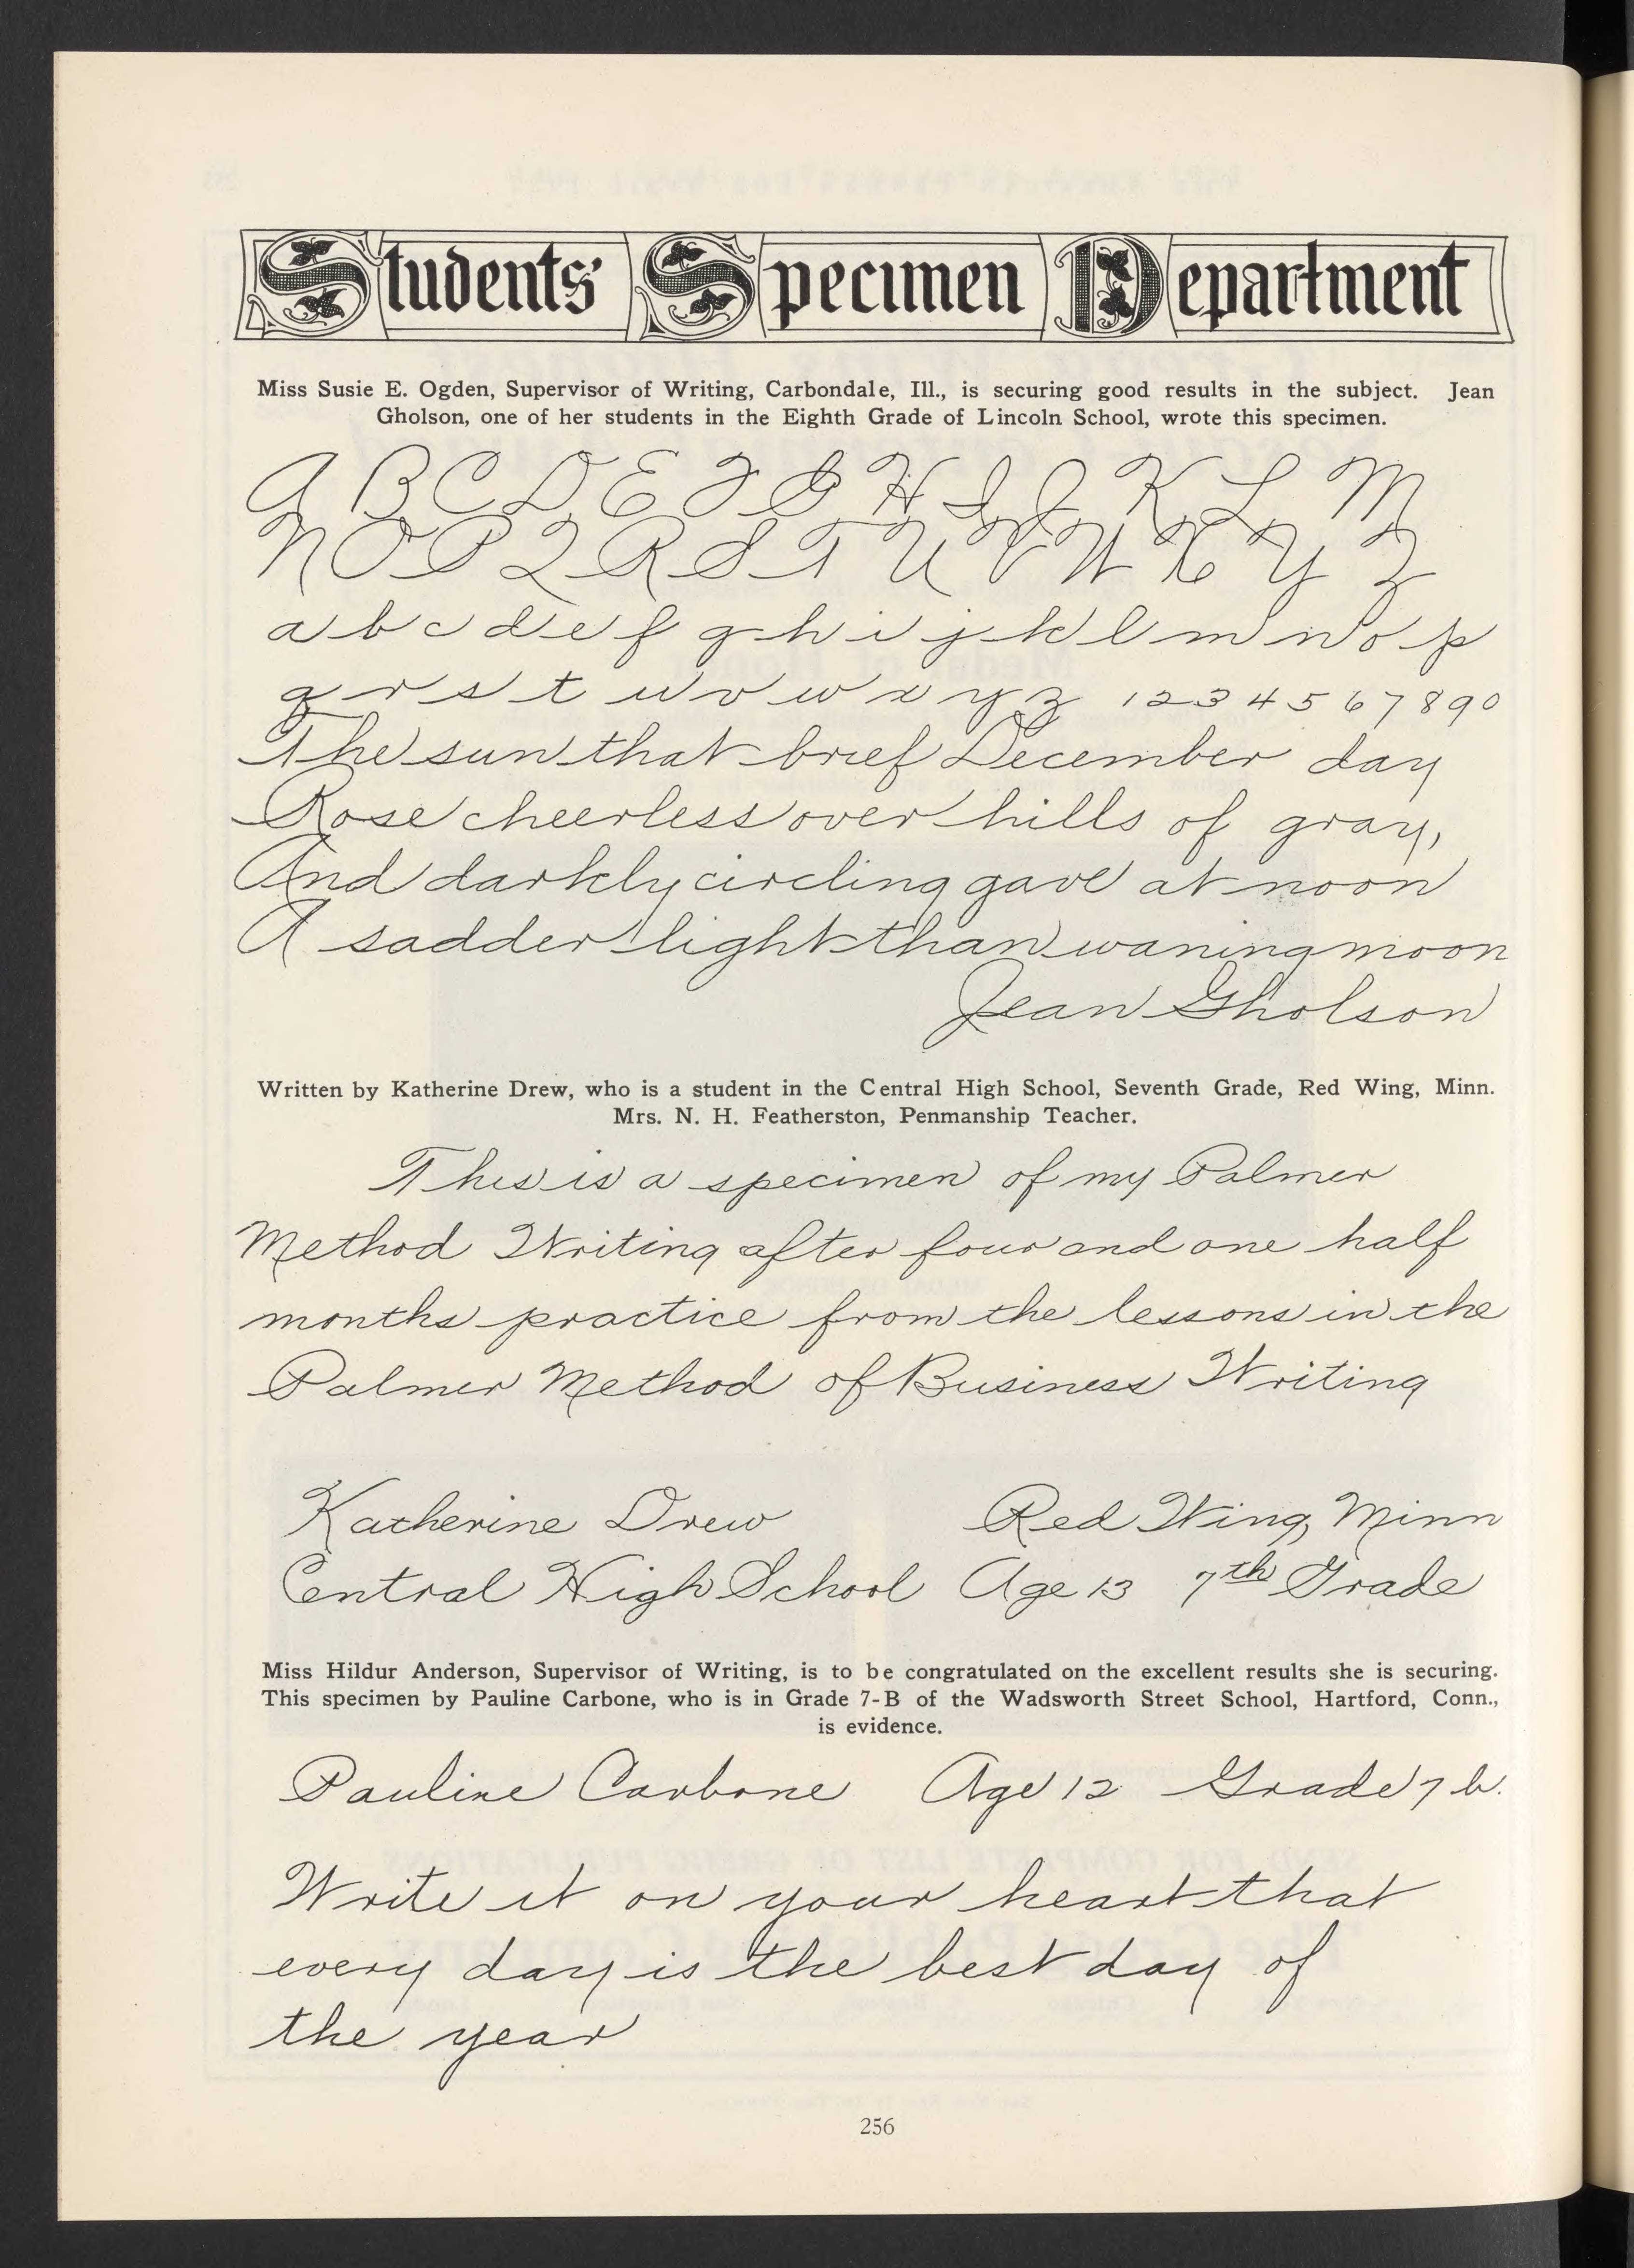 Students' Specimen Department
Miss Susie E. Ogden, Supervisor of Writing, Carbondale, Ill., is securing good results in the subject. Jean
Gholson, one of her students in the Eighth Grade of Lincoln School, wrote this specimen.
A B C D E F G H I J K L M
N O P Q R S T U V W X Y Z
a b c d e f g h i j k l m n o p
q r s t u v w x y z 1 2 3 4 5 6 7 8 9 0
The sun that brief December day
Rose cheerless over hills of gray,
And darkly circling gave at noon
A sadder light than waning moon
Jean Gholson
Written by Katherine Drew, who is a student in the Central High School, Seventh Grade, Red Wing, Minn.
Mrs. N. H. Featherston, Penmanship Teacher.
This is a specimen of my Palmer
Method Writing after four and one half
months practice from the lessons in the
Palmer Method of Business Writing
Katherine Drew Red Wing, Minn
Central High School Age 13 7th Grade
Miss Hildur Anderson, Supervisor of Writing, is to be congratulated on the excellent results she is securing.
This specimen by Pauline Carbone, who is in Grade 7-B of the Wadsworth Street School, Hartford, Conn.,
is evidence.
Pauline Carbone Age 12 Grade 7 b.
Write it on your heart that
every day is the best day of
the year
256